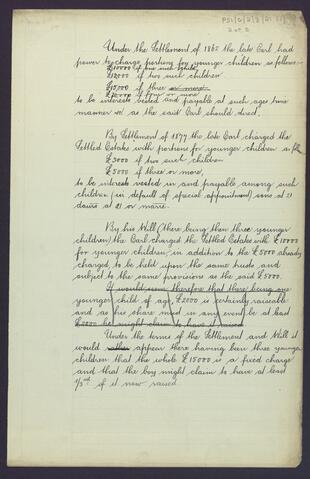 PSI/0/3/21
2 of 2
Under the Settlement of 1860 the late Earl had
power to charge portions for younger children as follows
£10000 if one such child
£12000 if two such children
£15000 if three or more
if four or more
to be interests vested and payable at such ages and
manner as the said Earl should direct.
By Settlement of 1877 the late Earl charged the
Settled Estates with portions for younger children as follows
£3000 if two such children
£5000 if three or more,
to be interests vested in and payable among such
children (in default of special appointment) sons at 21
daurs at 21 or marre.
By his Will (there being then three younger
children) the Earl charged the Settled Estates with £10000
for younger children in addition to the £5000 already
charged, to be held upon the same trusts and
subject to the same provisions as the said £5000.
It would seem therefore that there being one
younger child of age, £2000 is certainly raiseable
and as his share must in any event be at least
£2000 he might claim to have it raised
Under the terms of the Settlement and Will it
would rather appear there having been three younger
children that the whole £15000 is a fixed charge
and that the boy might claim to have at least
1/3rd of it now raised